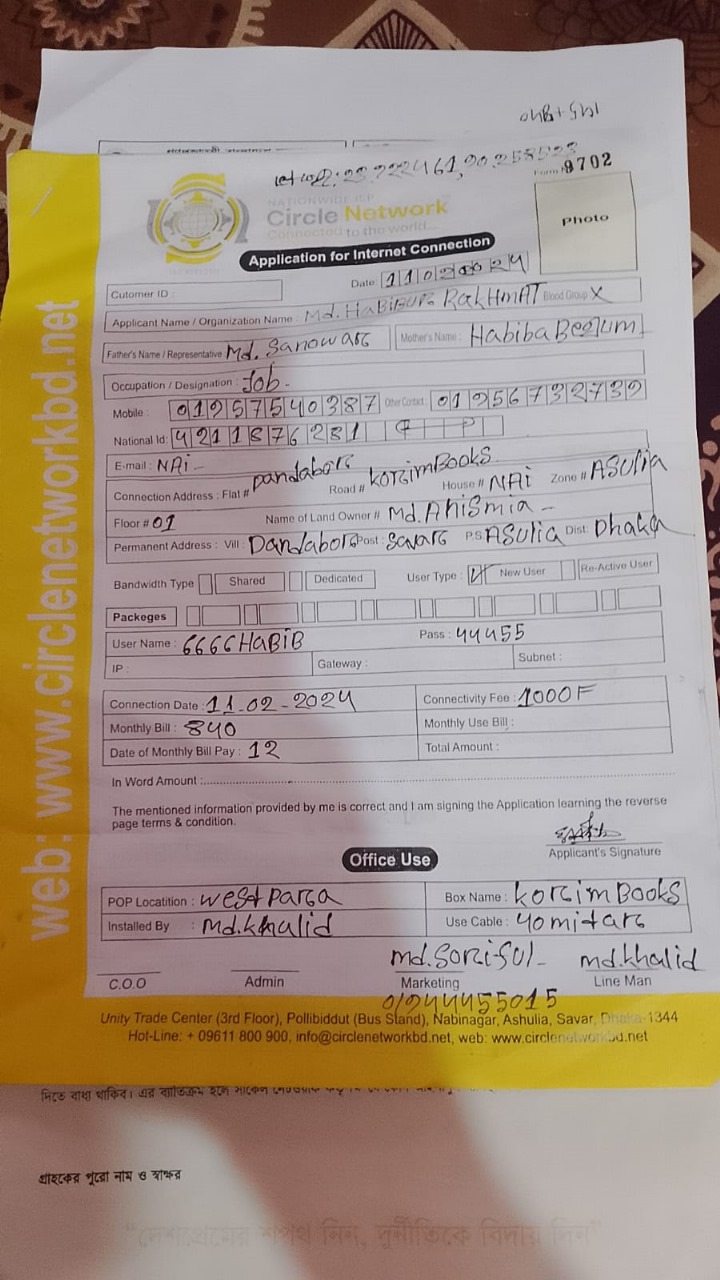 Form # 9702
NATIONWIDE ISP
Circle Network
Connected to the world...
Photo
Application for Internet Connection
Date: 11022024
Cutomer ID :
Applicant Name / Organization Name : Md. Blood Group X
Father's Name / Representative Md. Sanowar Mother's Name : Habiba Begum
Occupation / Designation : Job -
Mobile : 01957540387 Other Contact : 01956732739
National Id: 4211876281
E-mail : NAi -
Connection Address : Flat # Road # House # NAi Zone # ASulia
Floor # 01 Name of Land Owner # Md. Anismia -
Permanent Address : Vill : Post : Savar P.S ASulia Dist: Dhaka
Bandwidth Type Shared Dedicated User Type : New User Re-Active User
Packeges
User Name : 6666HaBiB Pass : 44455
IP : Gateway : Subnet :
Connection Date : 11-02-2024 Connectivity Fee : 1000F
Monthly Bill : 840 Monthly Use Bill :
Date of Monthly Bill Pay : 12 Total Amount :
In Word Amount :
The mentioned information provided by me is correct and I am signing the Application learning the reverse
page terms & condition.
Applicant's Signature
Office Use
POP Locatition : west para Box Name : korim Books
Installed By : Md. khalid Use Cable : 40 mitar
md. Soriful - md. khalid
C.O.O Admin Marketing Line Man
01944455015
Unity Trade Center (3rd Floor), Pollibiddut (Bus Stand), Nabinagar, Ashulia, Savar, Dhaka-1344
Hot-Line: + 09611 800 900, info@circlenetworkbd.net, web: www.circlenetworkbd.net
web: www.circlenetworkbd.net
গ্রাহকের পুরো নাম ও স্বাক্ষর
“দেশপ্রেমের শপথ নিন, দুর্নীতিকে বিদায় দিন”